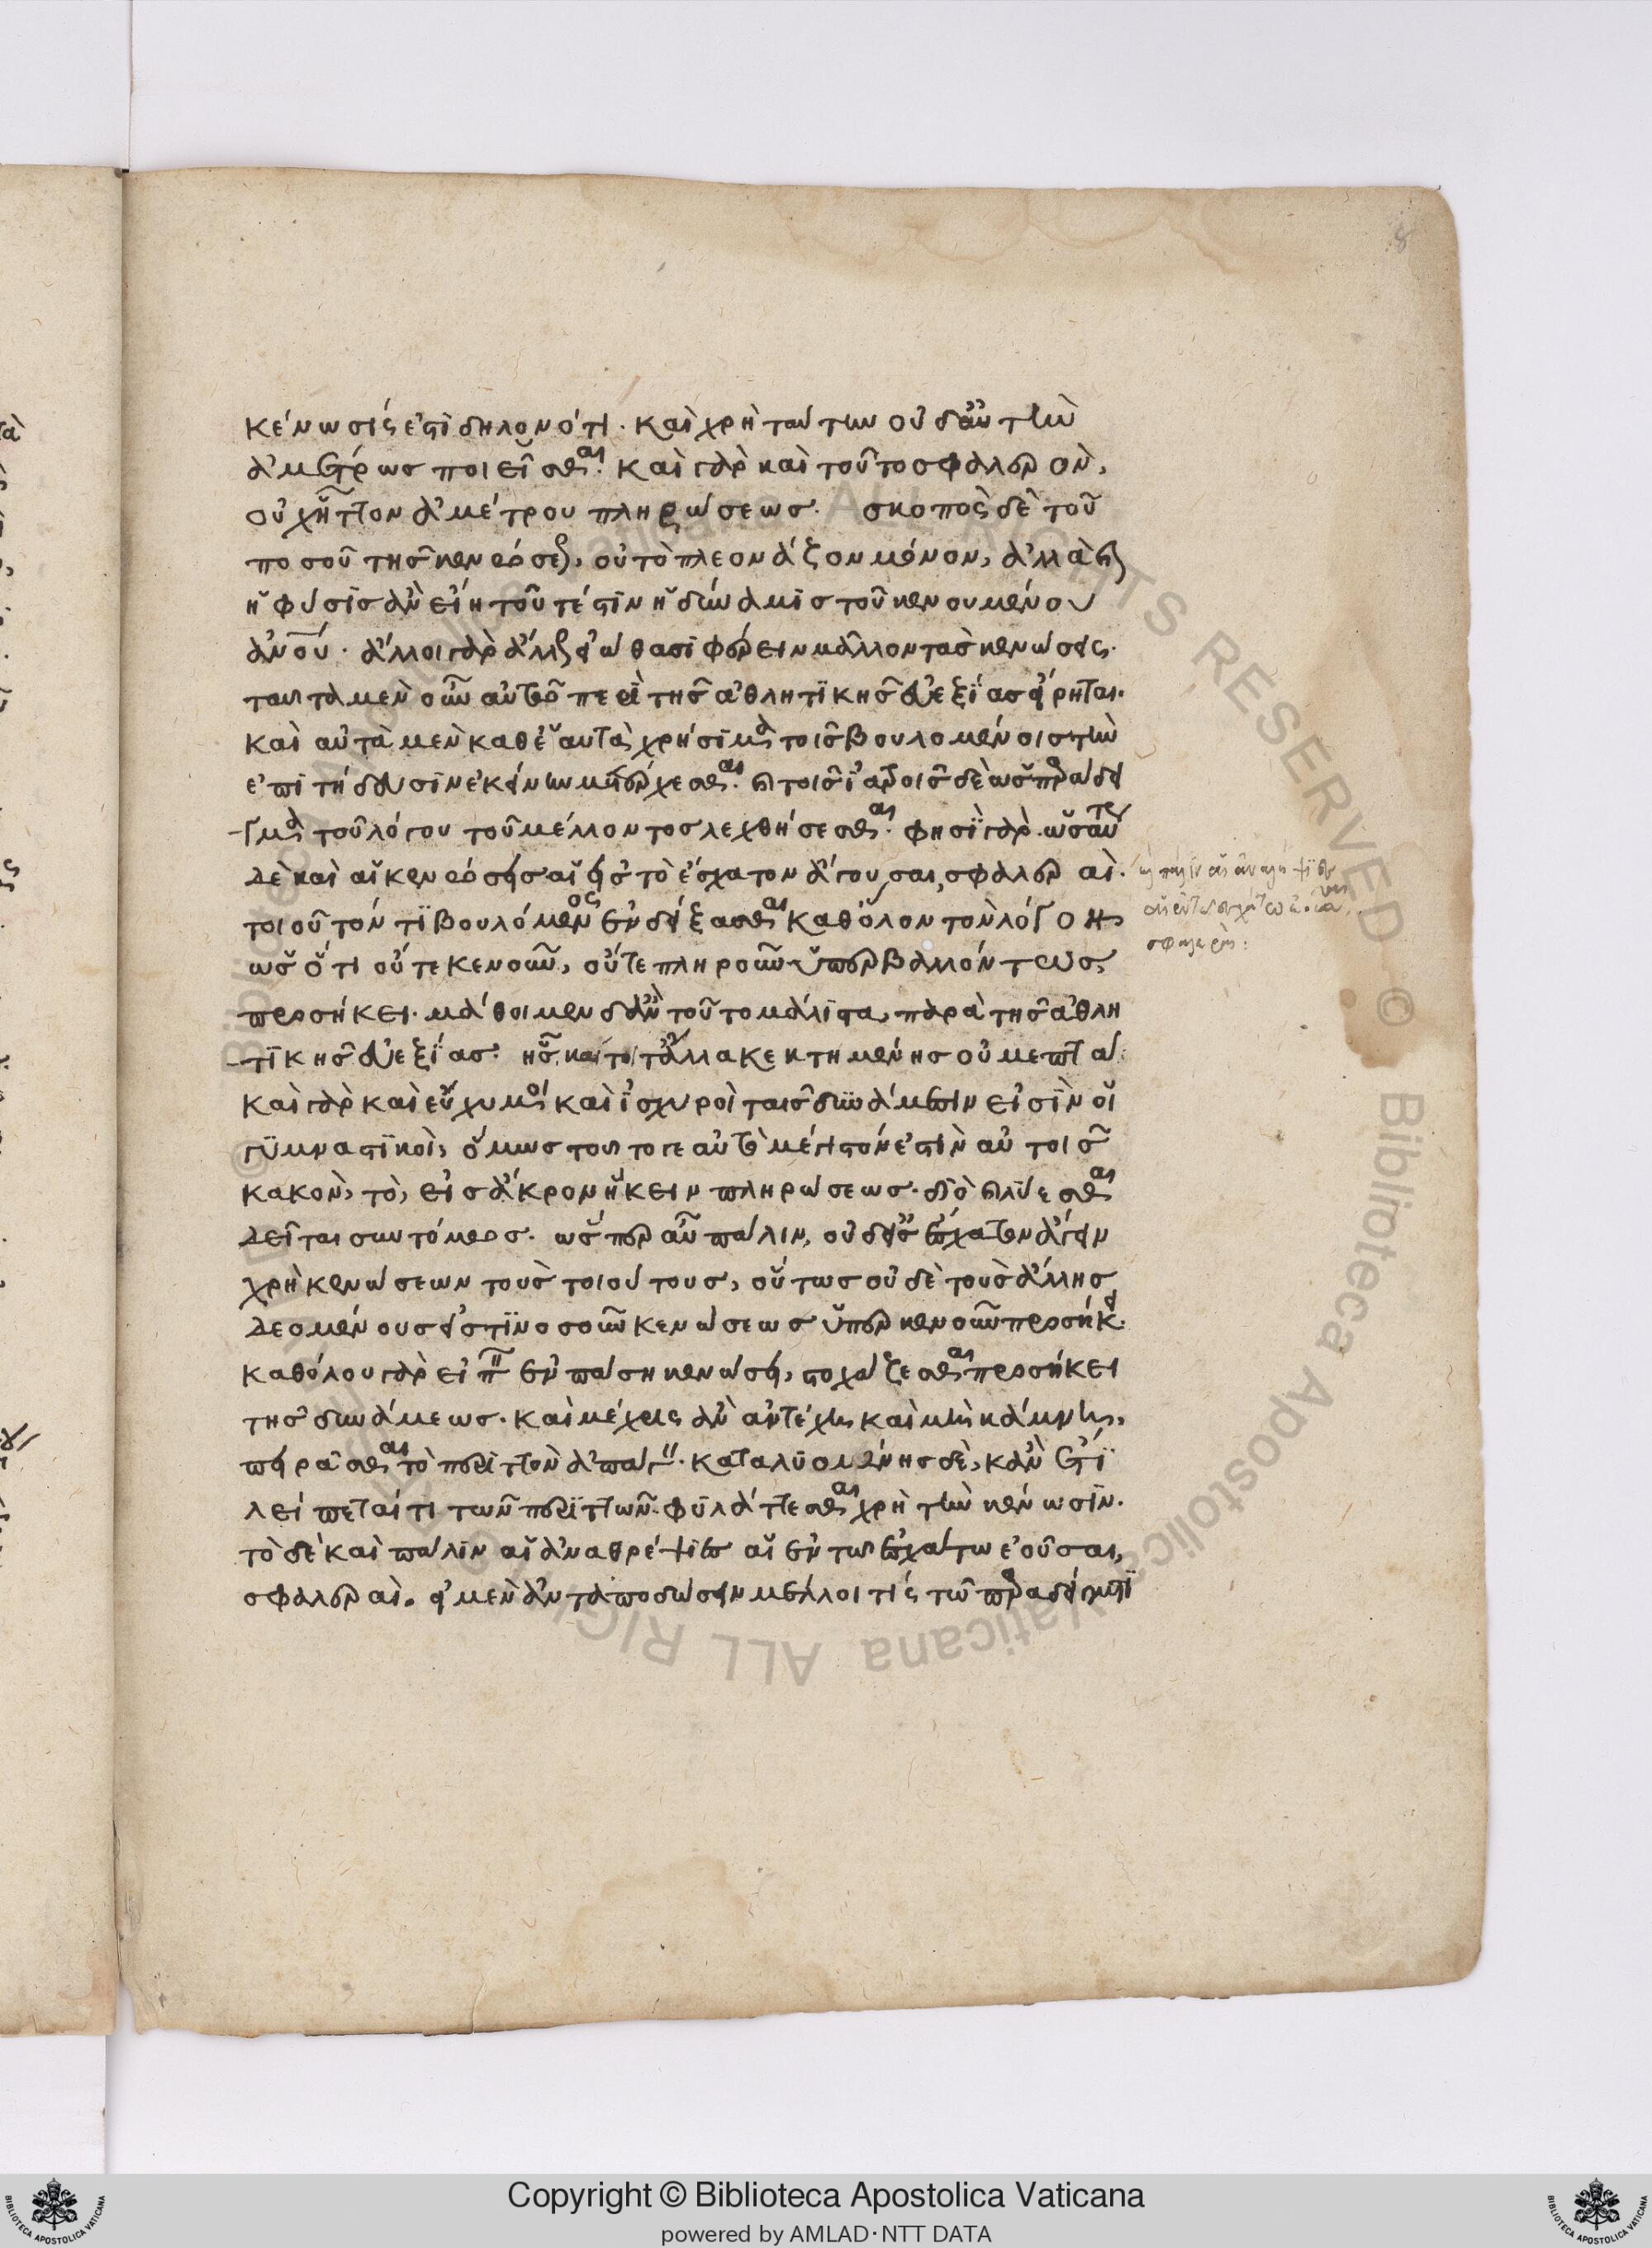 κένωσίς ἐστι δηλονότι. καὶ χρὴ ταύτην οὐδ' αὖ τὴν
ἀμέτρως ποιεῖσθαι. καὶ γὰρ καὶ τοῦτο σφαλερὸν,
οὐχ ἧττον ἀμέτρου πληρώσεως. σκοπὸς δὲ τοῦ
ποσοῦ τῆς κενώσεως, οὐ τὸ πλεονάζον μόνον, ἀλλὰ καὶ
ἡ φύσις ἂν εἴη τουτέστιν ἡ δύναμις τοῦ κενουμένου
ἀνου. ἄλλοι γὰρ ἄλλας εἰώθασι φέρειν μᾶλλον τὰς κενώσεις.
ταῦτα μὲν οὖν αὐτῷ περὶ τῆς ἀθλητικῆς εὐεξίας εἴρηται.
καὶ αὐτὰ μὲν καθ' ἑαυτὰ χρήσιμα τοῖς βουλομένοις τὴν
ἐπιτήδευσιν ἐκείνην μετέρχεσθαι. καὶ τοῖς ἰατροῖς δὲ ὡς παραδεί
γμα τοῦ λόγου τοῦ μέλλοντος λεχθήσεσθαι. φησὶ γὰρ. ὡσαύτως
δὲ καὶ αἱ κενώσεις αἱ εἰς τὸ ἔσχατον ἄγουσαι, σφαλεραί.
τοιοῦτόν τι βουλόμενος ἐνδείξασθαι καθ' ὅλον τὸν λόγον,
ὡς ὅτι οὔτε κενοῦν, οὔτε πληροῦν ὑπερβαλλόντως
προσήκει. μάθοιμεν δ' ἂν τοῦτο μάλιστα, παρὰ τῆς ἀθλη
τικῆς εὐεξίας. ἧς καίτοι τἄλλα κεκτημένης οὐ μεπτά.
καὶ γὰρ καὶ εὔχυμοι καὶ ἰσχυροὶ ταῖς δυνάμεσιν εἰσὶν οἱ
γυμναστικοὶ, ὅμως τοῦτό γε αὐτὸ μέγιστόν ἐστιν αὐτοῖς
κακὸν, τὸ, εἰς ἄκρον ἥκειν πληρώσεως. διὸ καὶ λύεσθαι
δεῖται συντόμως. ὥσπερ οὖν πάλιν, οὐδ' εἰς ἔσχατον ἄγειν
χρὴ κενώσεων τοὺς τοιούτους, οὕτως οὐδὲ τοὺς ἄλλης
δεομένους εἰστινοσοῦν κενώσεως ὑπερκενοῦν προσήκει.
καθόλου γὰρ εἰπεῖν ἐν πάσῃ κενώσει, στοχάζεσθαι προσήκει
τῆς δυνάμεως. καὶ μέχρις ἂν ἀντέχῃ καὶ μὴ κάμνῃ,
πειρᾶσθαι τὸ περιττὸν ἀπάγειν. καταλυομένης δὲ, κἂν ἔτι
λείπεταί τι τῶν περιττῶν. φυλάττεσθαι χρὴ τὴν κένωσιν.
τὸ δὲ καὶ πάλιν αἱ ἀναθρέψιες αἱ ἐν τῷ ἐσχάτῳ ἐοῦσαι,
σφαλεραί. εἰ μὲν ἀνταποδώσειν μέλλοι τίς τῷ παραδείγματι